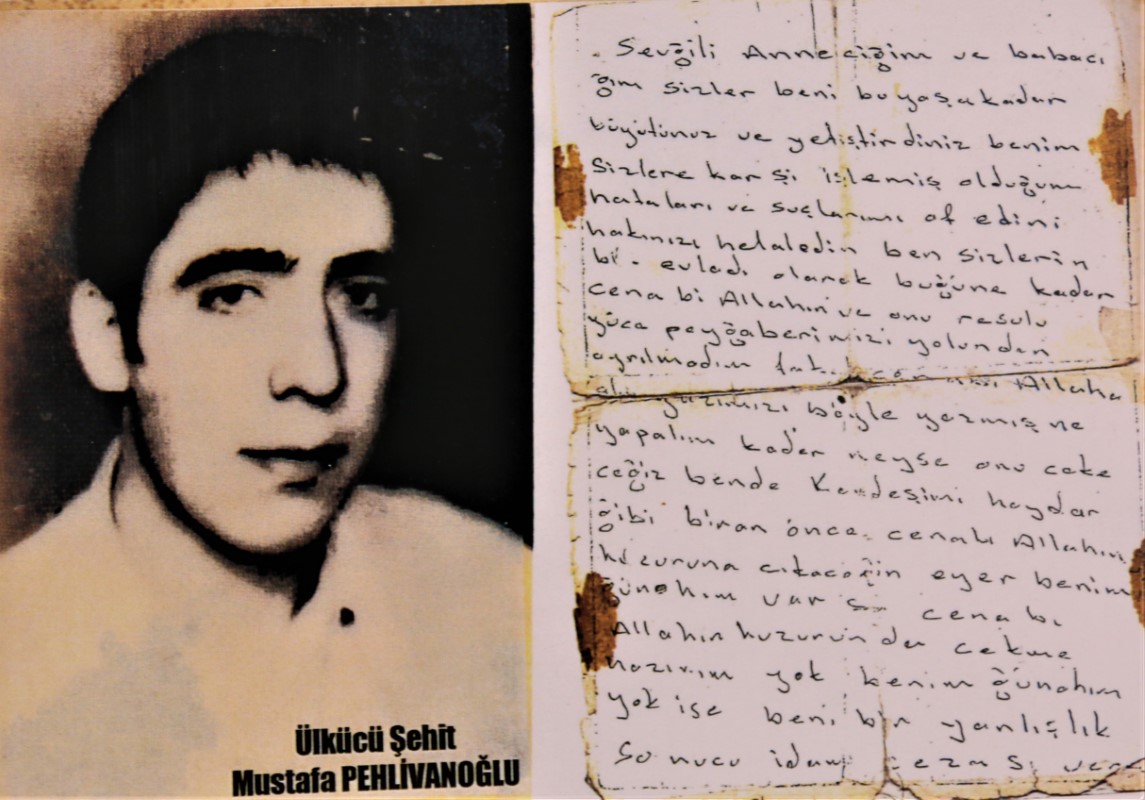 Ülkücü Şehit
Mustafa PEHLİVANOĞLU
. Sevğili Anneciğim ve babacı
ğım sizler beni bu yaşa kadar
büyütünuz ve yetiştirdiniz benim
sizlere karşi işlemiş olduğum
hataları ve suçlarımı af edini
hakınızı helaledin ben sizlerin
bi- evladı olarak buğüne kadar
cena bi Allahın ve onu resulu
yüce peyğaberimizi yolundan
ayrılmadım
yüzimizi böyle yazmış ne
yapalım kader neyse onu ceke
ceğiz bende Kardeşimi haydar
ğibi biran önce cenabı Allahın
huzuruna cıkacağın eyer benim
ğünahım var sa cena bı
Allahın huzurunda cekme
hazırım yok benim ğünahım
yok ise beni bir yanlışlık
sonucu idam ceza sı